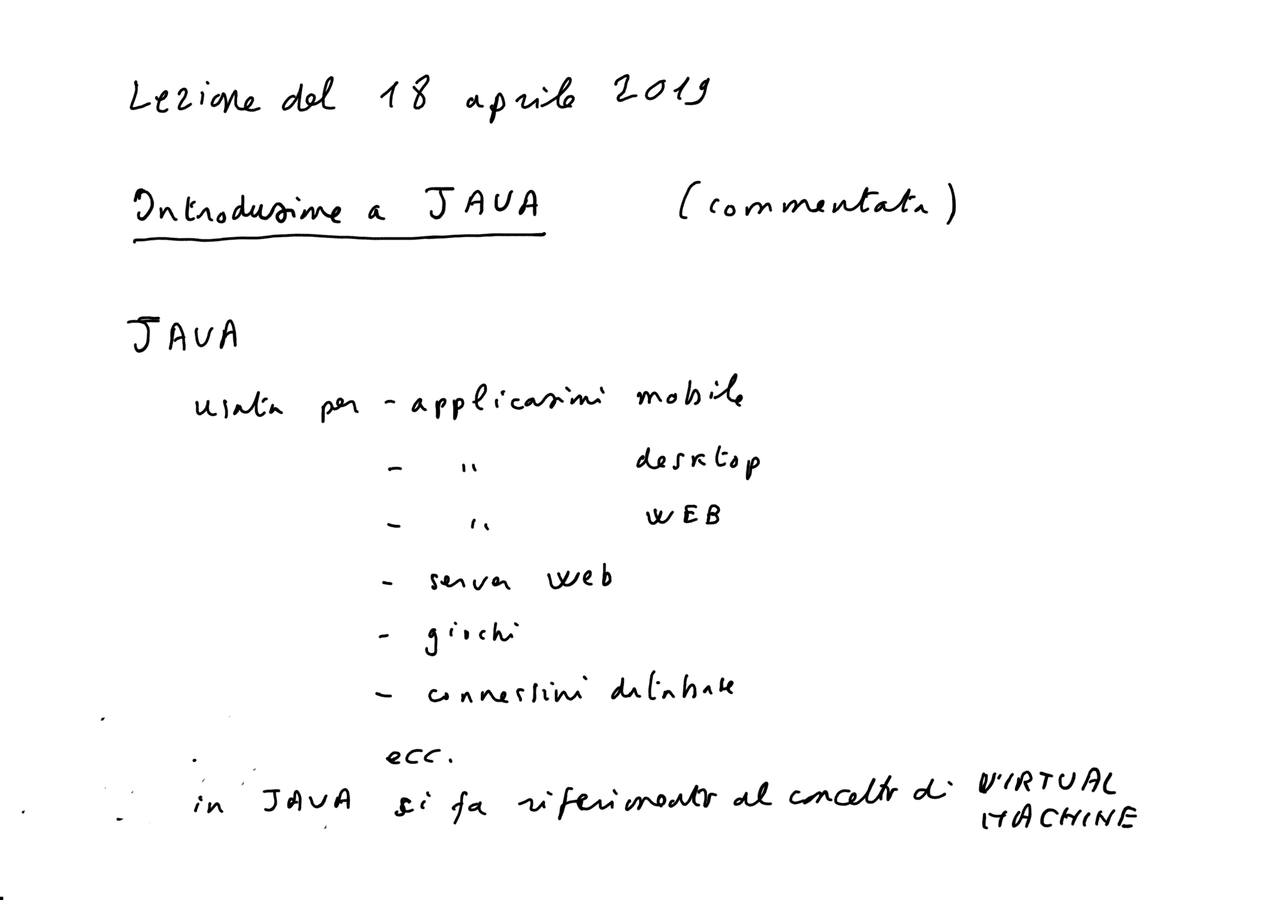 Lezione del 18 aprile 2019
Introduzione a JAVA (commentata)
JAVA
usata per - applicazioni mobile
- " desktop
- " WEB
- server web
- giochi
- connessioni database
ecc.
in JAVA si fa riferimento al concetto di VIRTUAL
MACHINE